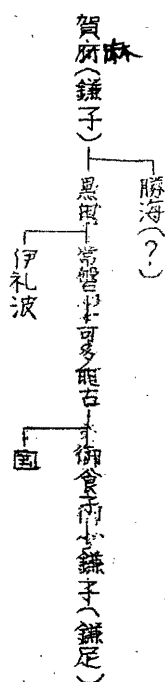 賀麻(鎌子)
勝海(?)
黒田
常磐
可多能古
御食子
鎌子(鎌足)
伊礼波
国